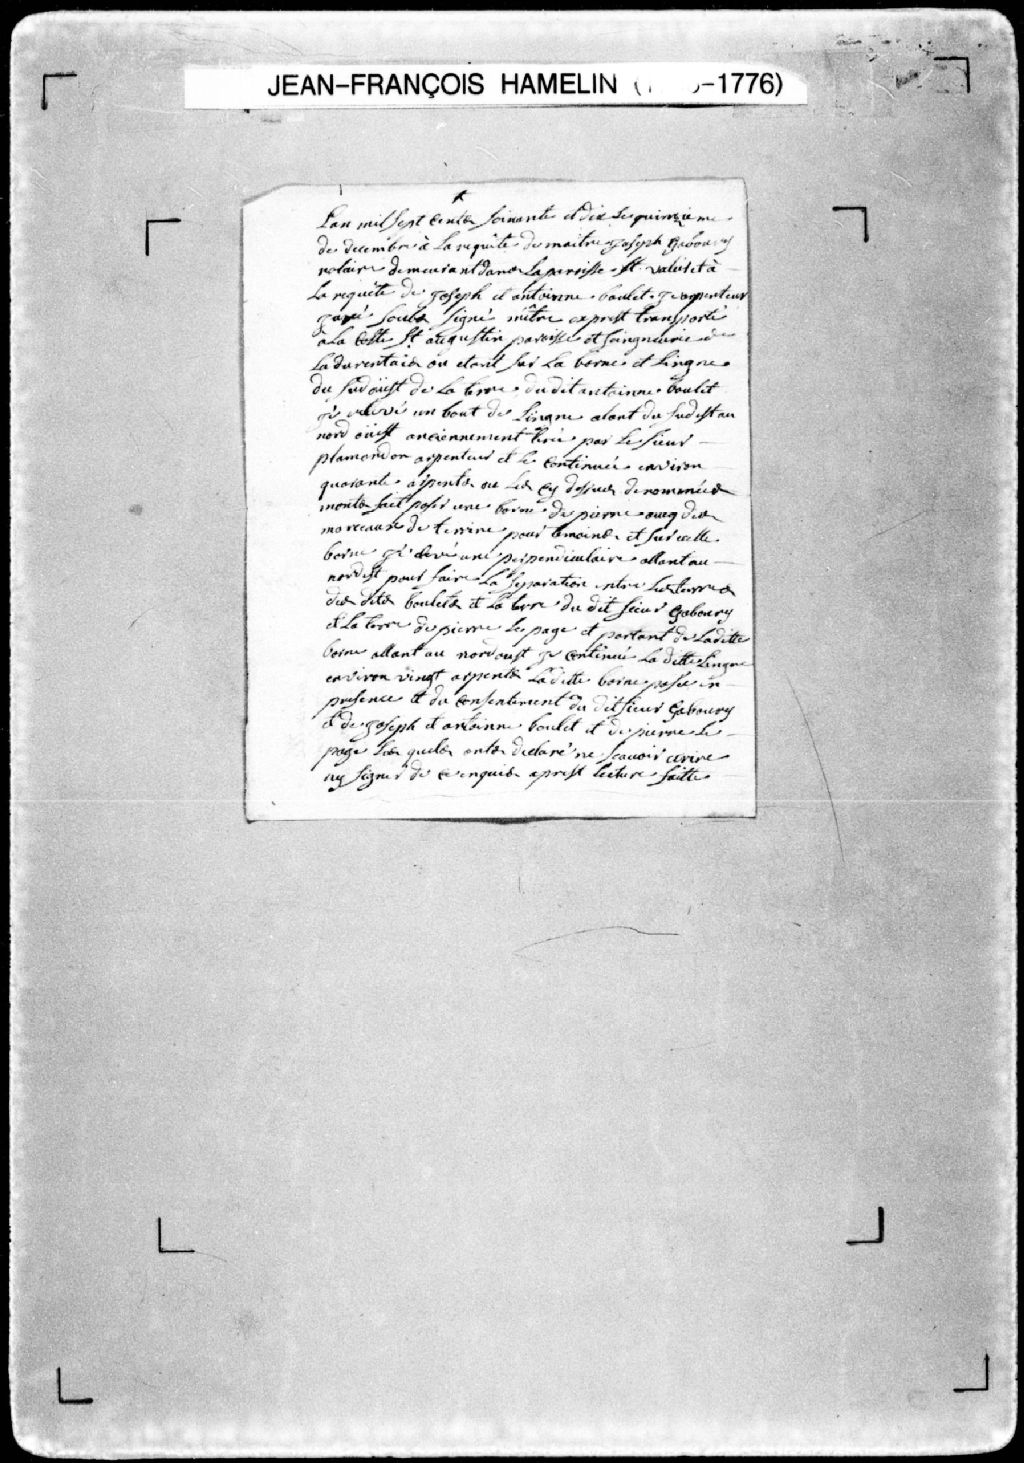 JEAN-FRANÇOIS HAMELIN ( -1776)
L'an mil sept cents soixante et dix le quinzieme
de decembre à la requête de maitre joseph Gaboury
notaire demeurant dans la paroisse St valiest à
la requête de joseph et antoinne boulet je arpenteur
juré souts signé mêtre exprest transporté
a La Coste St augustin paroisse et seingneurie de
La durentais ou etant sur La borne et Lingne
du sudoüest de La terre du dit antoinne boulet
jé relevé un bout de Lingne alant du sudest au
nord oüest anciennement tirée par Le sieur
plamondon arpenteur et Le Continuée environ
quarante arpents ou Les Cy dessus denommées
monts fait poser une borne de pierre aveq des
morceaux de terrine pour temoins et sur cette
borne jé élevé une perpendiculaire allant au
nordest pour faire La separation entre Les terres
des dits boulets et La terre du dit sieur Gaboury
et La terre de pierre Le page et partant de Laditte
borne allant au nordouest je Continué La ditte Lingne
environ vingt arpents La ditte borne posée en
presence et du Consentement du dit sieur Gaboury
et de joseph et antoinne boulet et de pierre Le
page Les quels onts declaré ne scavoir ecrire
ny signer de ce enquis aprest Lecture faitte